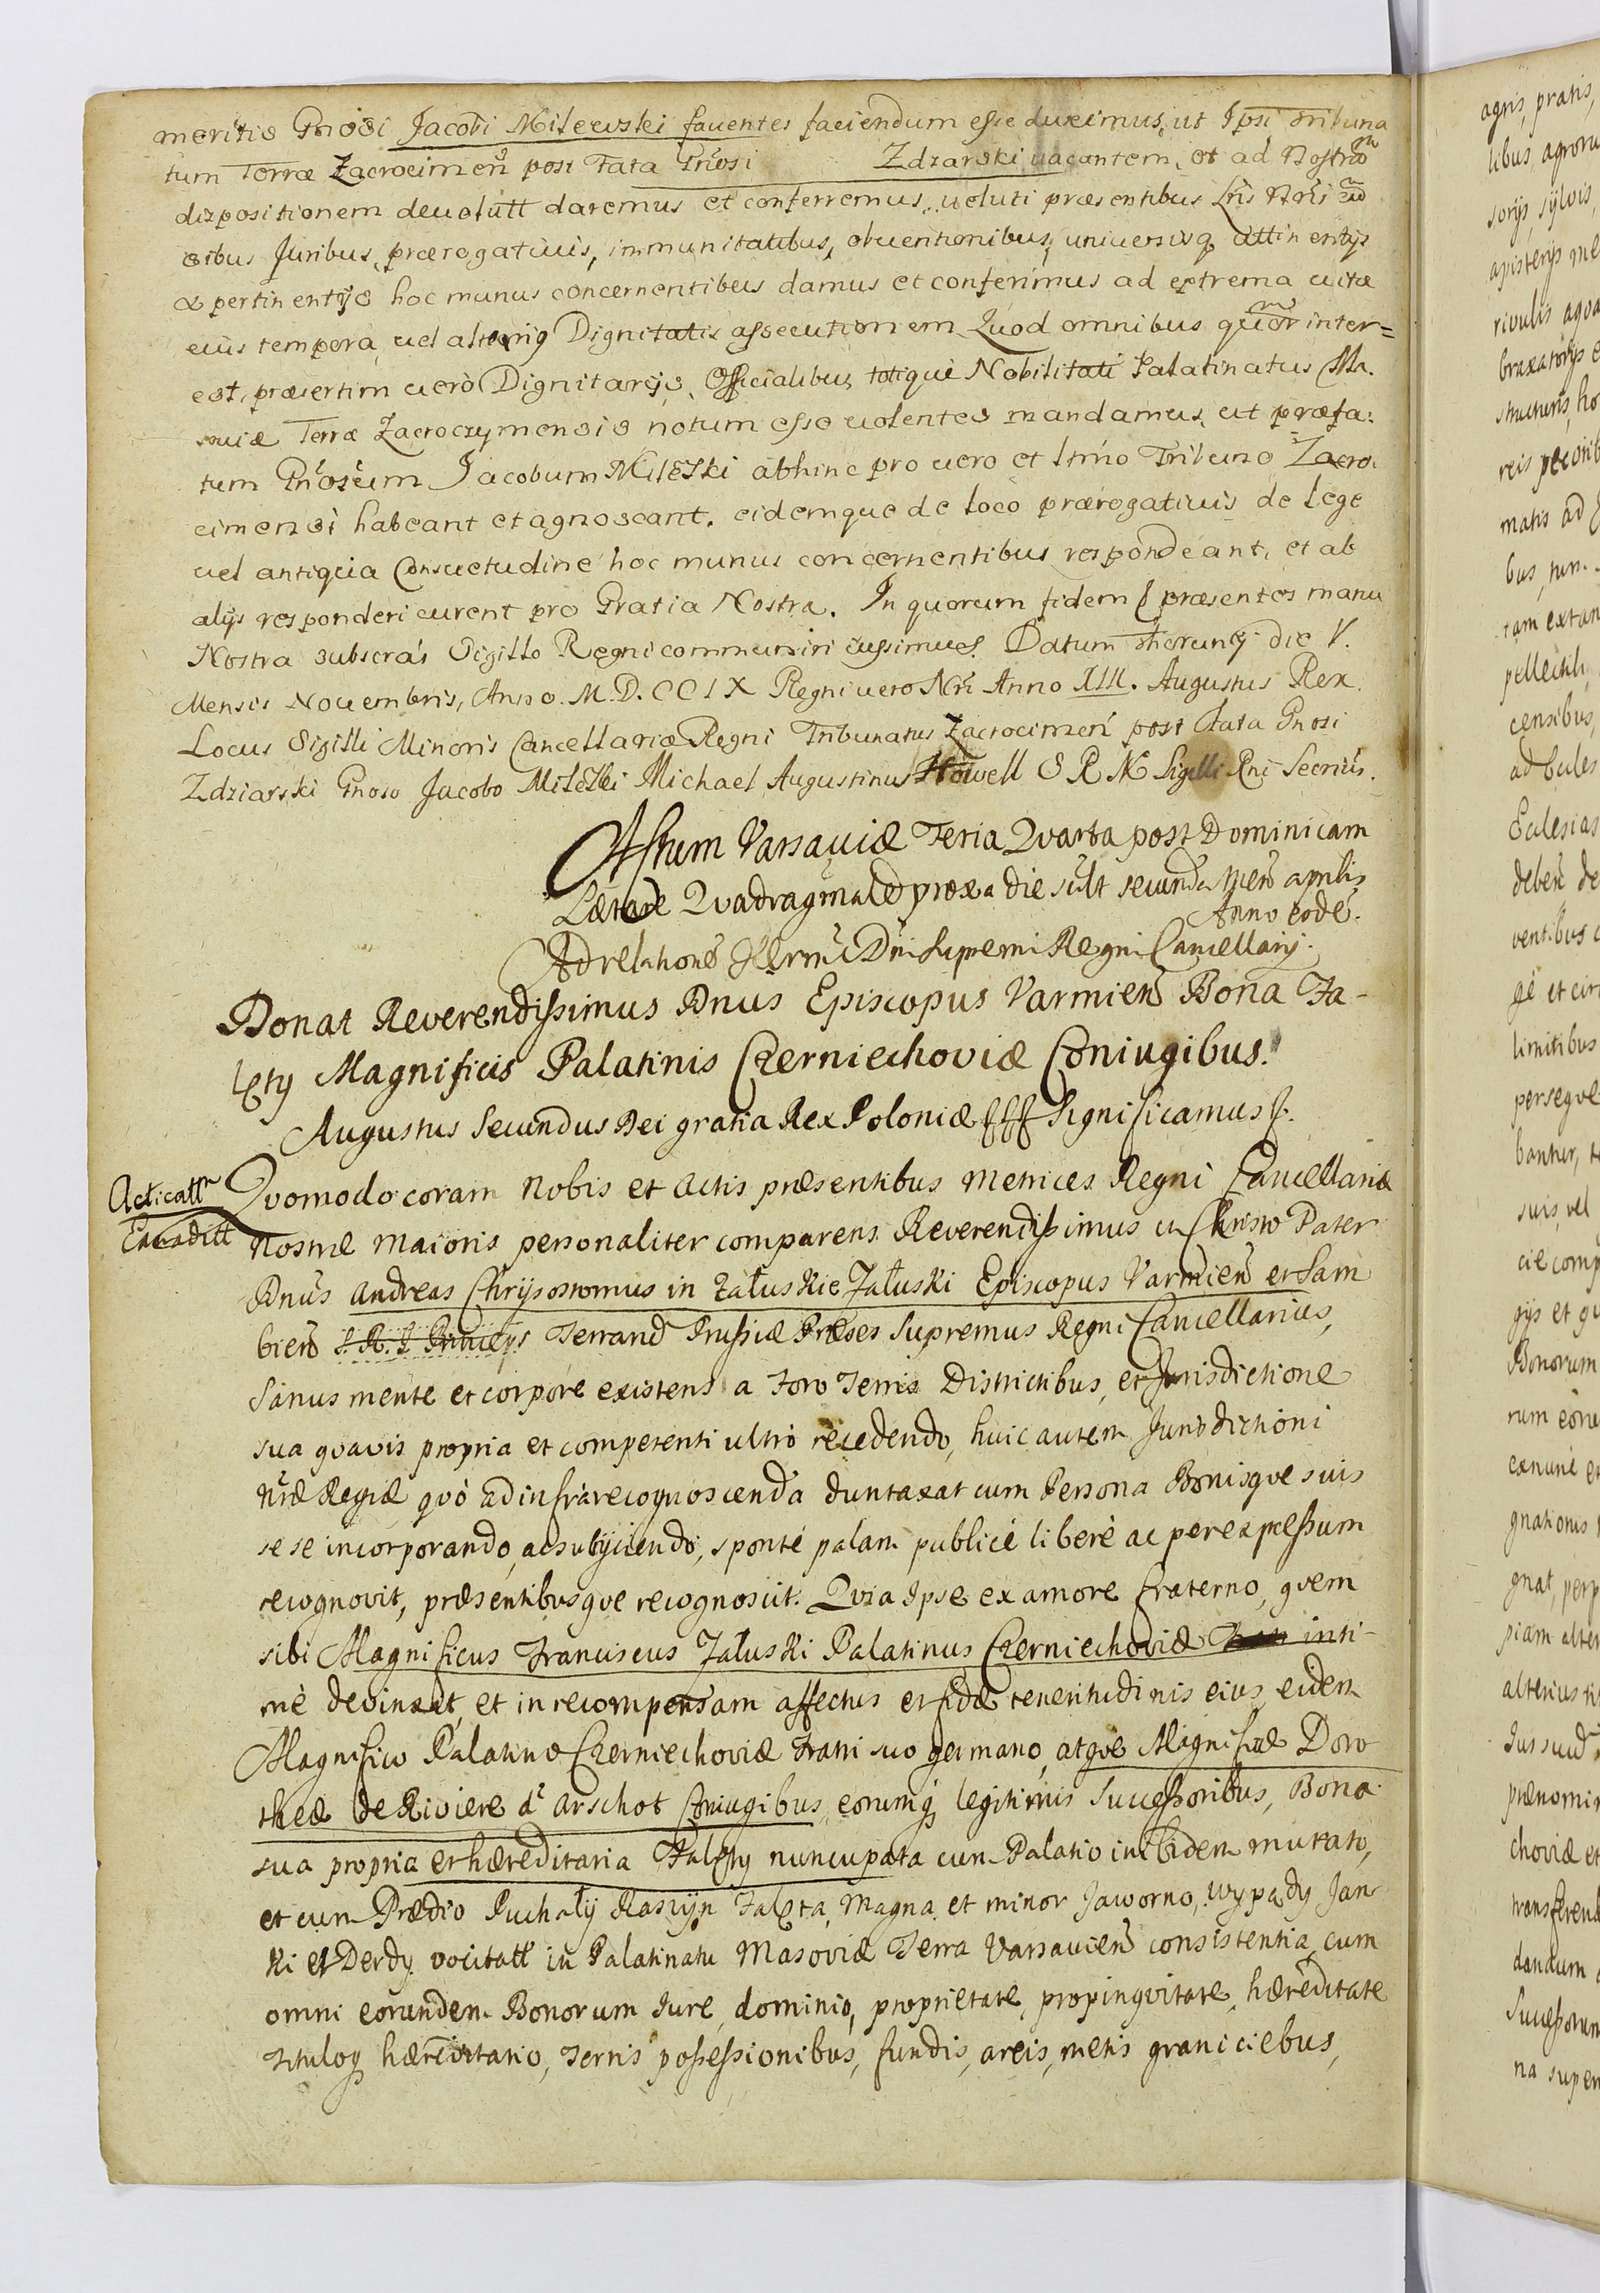 meritis Gnosi Jacobi Milewski fauentes faciendum esse duximus, ut Ipsi Tribuna
tum Terræ Zacrocimen post Fata Gnosi Zdzarski uacantem, et ad Nostram
dispositionem deuolutt daremus et conferremus, ueluti præsentibus Lris Nris cum
oibus Juribus, prærogatiuis, immunitatibus, obuentionibus, uniuersisq attinentijs
& pertinentijs hoc munus concernentibus damus et conferimus ad extrema uitæ
eius tempora, uel alterius Dignitatis assecutionem. Quod omnibus quor inter=
est, præsertim uerò Dignitarijs, Officialibus, totique Nobilitati Palatinatus Ma.
souiæ Terræ Zacroczymensis notum esse uolentes mandamus, ut præfa:
tum Gnosum Jacobum Mileski abhinc pro uero et ltmo Tribuno Zacro.
cimensi habeant et agnoscant, eidemque de loco prærogatiuis de Lege
uel antiqua Consuetudine hoc munus concernentibus respondeant, et ab
alijs responderi curent pro Gratia Nostra. In quorum fidem præsentes manu
Nostra subscras Sigillo Regni communiri iussimus. Datum Thorunij die V.
Mensis Nouembris, Anno. M.D.CCIX Regni uero Nri Anno XIII. Augustus Rex.
Locus Sigilli Minoris Cancellariæ Regni Tribunatus Zacrocimen post Fata Gnosi
Zdziarski Gnoso Jacobo Mileski Michael Augustinus Howell S R M Sigilli Rni Secrius.
Actum Varsauiæ Feria Qvarta post Dominicam
Lætare Qvadragmalem proxa die silt secunda Mens aprilis
Anno eodē.
Ad relationē Illrmi Dni Supremi Regni Cancellarij.
Donat Reverendissimus Dnus Episcopus Varmien Bona Fa-
lęty Magnificis Palatinis Czerniechoviæ Coniugibus.
Augustus Secundus Dei gratia Rex Poloniæ fff Significamus f.
Acticatt
Extraditt
Qvomodo coram Nobis et Actis præsentibus Metrices Regni Cancellariæ
Nostræ Maioris personaliter comparens Reverendissimus in Christo Pater
Dnus Andreas Chrysostomus in Załuskie Załuski Episcopus Varmien et Sam
bien S. R. I Princeps Terrarū Prussiæ Præses Supremus Regni Cancellarius,
Sanus mente et corpore existens a Foro Terris Districtibus, et Jurisdictione
sua qvavis propria et competenti ultro recedendo, huic autem Jurisdictioni
Nræ Regiæ qvò ad infra recognoscenda duntaxat cum Persona Bonisqve suis
sese incorporando, ac subijciendo, sponte palam publicè liberè ac per expressum
recognovit, præsentibusqve recognoscit. Qvia Ipse ex amore fraterno, qvem
sibi Magnificus Franciscus Załuski Palatinus Czerniechoviæ inti-
mè devinxit, et in recompensam affectus et fidæ teneritudinis eius, eidem
Magnifico Palatino Czerniechoviæ Fratri suo germano, atqve Magnificæ Doro
theæ de Riviere d' Arschot Coniugibus, eorumq legitimis Successoribus, Bona
sua propria et hæreditaria Falęty nuncupata cum Palatio in ibidem murato,
et cum Prædio Puchały Raszyn Falęta, Magna et minor Jaworno, Wypędy Jan
ki et Derdy vocitatt in Palatinatu Masoviæ Terra Varsavien consistentia, cum
omni eorundem Bonorum Jure, dominio, proprietate, propinqvitate, hæreditate
tituloq hæreditario, Terris possessionibus, fundis, areis, metis graniciebus,